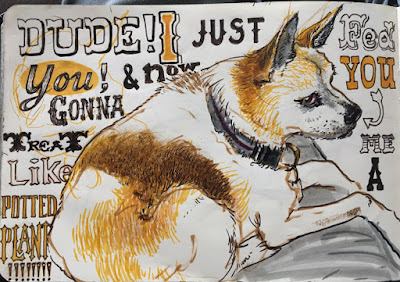 DUDE! I JUST Fed
You! & now YOU
GONNA ME
TreaT A
Like
POTTED
PLANT
!!!!!!!!